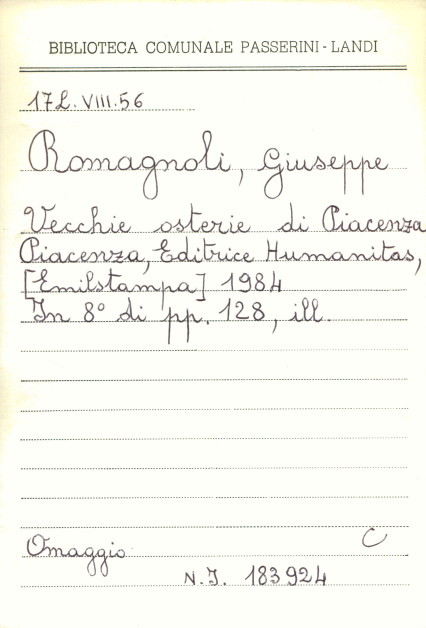 BIBLIOTECA COMUNALE PASSERINI-LANDI
17L.VIII.56
Romagnoli, Giuseppe
Vecchie osterie di Piacenza
Piacenza, Editrice Humanitas,
[Emilstampa] 1984
In 8° di pp. 128, ill.
Omaggio C
N.I. 183924